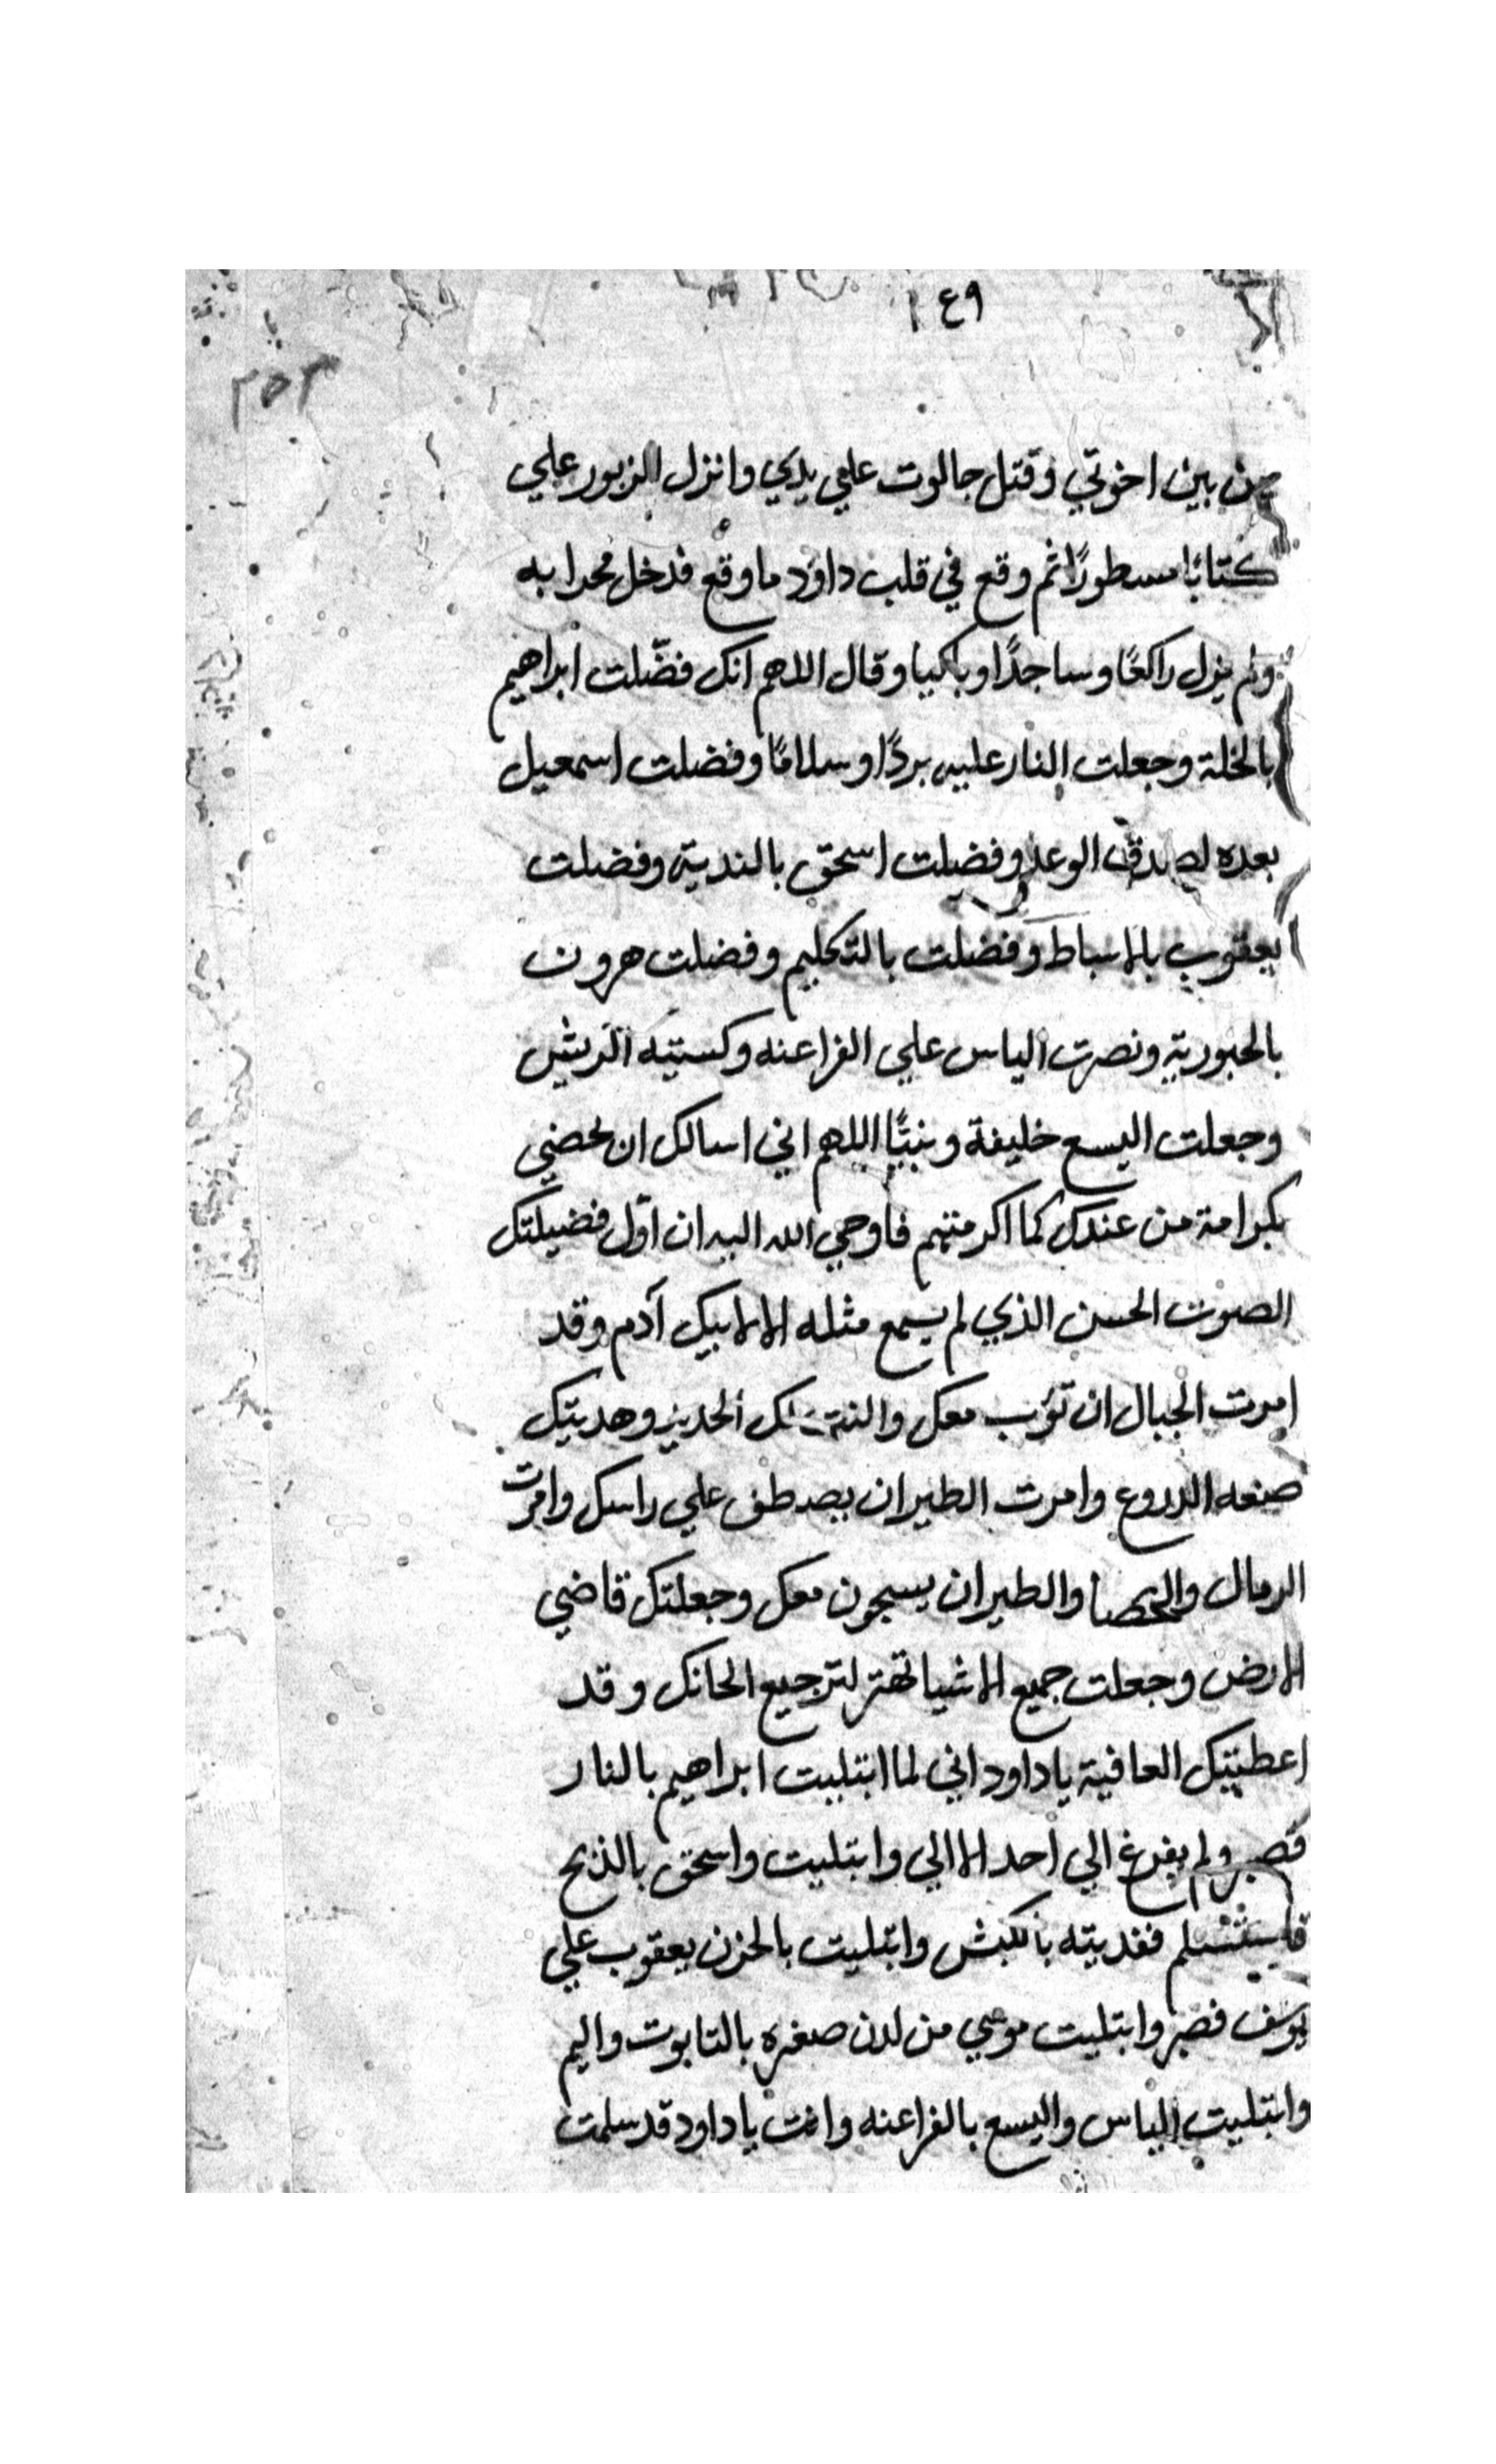 ٤٩
من بين اخوتي وقتل جالوت علي يدي وانزل الزبور علي
كتابًا مسطورًا ثم وقع في قلب داوٗد ما وقع فدخل محرابه
ولم يزل راكعًا وساجدًا وباكيا وقال اللهم انك فضّلت ابراهيم
بالخلة وجعلت النار عليه بردًا وسلامًا وفضلت اسمعيل
بعده لصدق الوعد وفضلت اسحق بالفدية وفضلت
يعقوب بالاسباط وفضلت بالتكليم وفضلت هرون
بالحبورية ونصرت الياس علي الفراعنه وكسيته الريش
وجعلت اليسع خليفة ونبيًّا اللهم اني اسالك ان تخصني
بكرامة من عندك كما اكرمتهم فاوحي الله اليه ان اوّل فضيلتك
الصوت الحسن الذي لم يسمع مثله الا لابيك آدم وقد
امرت الجبال ان تؤب معك والنت لك الحديد وهديتك
صنعه الدروع وامرت الطير ان يصطف علي راسك وامرت
الرمال والحصا والطير ان يسبحون معك وجعلتك قاضي
الارض وجعلت جميع الاشيا تهتز لترجيع الحانك وقد
اعطيتك العافية يا داود اني لما ابتليت ابراهيم بالنار
فصبر ولم يفزغ الي احد الا الي وابتليت واسحق بالذبح
فاستسلم ففديته بالكبش وابتليت بالحزن يعقوب علي
يوسف فصبر وابتليت موسي من لدن صغره بالتابوت واليم
وابتليت الياس واليسع بالفراعنه وانت يا داود قد سلمت